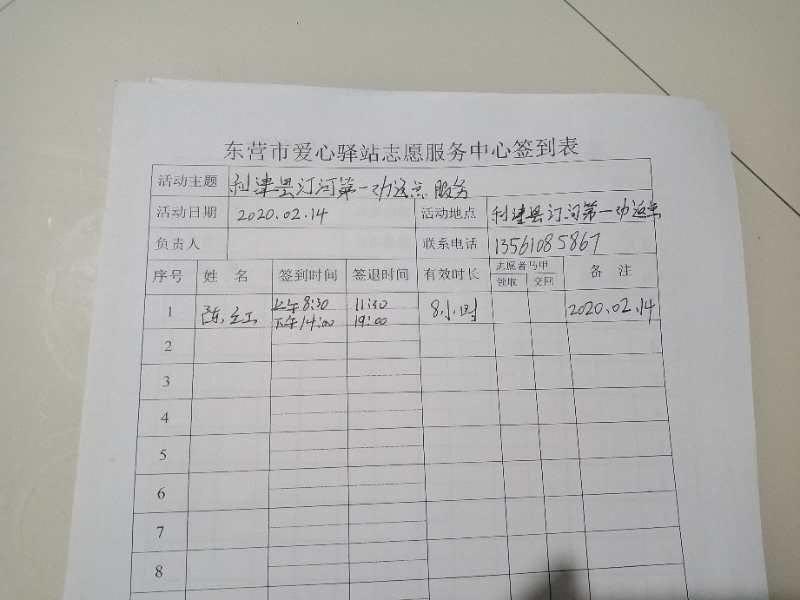 东营市爱心驿站志愿服务中心签到表
活动主题 利津县汀河第一劝返点服务
活动日期 2020.02.14 活动地点 利津县汀河第一劝返点
负责人 联系电话 13561085867
序号 姓 名 签到时间 签退时间 有效时长 志愿者马甲 备 注
领取 交回
1 陈红 上午8:30 11:30 8小时 2020.02.14
下午14:00 19:00
2
3
4
5
6
7
8